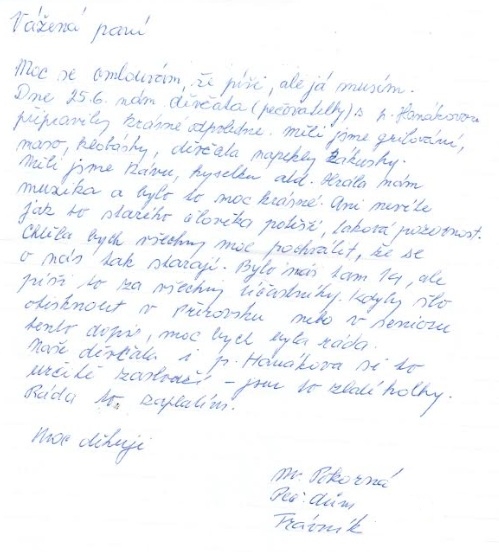 Vážená paní
Moc se omlouvám, že píši, ale já musím.
Dne 25.6. nám děvčata (pečovatelky) s p. Hanákovou
připravily krásné odpoledne. Měli jsme grilování,
maso, klobásky, děvčata napekly zákusky.
Měli jsme kávu, kyselku atd. Hrála nám
muzika a bylo to moc krásné. Ani nevíte
jak to starého člověka potěší, taková pozornost.
Chtěla bych všechny moc pochválit, že se
o nás tak starají. Bylo nás tam 14, ale
píši to za všechny účastníky. Kdyby šlo
otisknout v Přerovsku nebo v seniozu
tento dopis, moc bych byla ráda.
Naše děvčata i p. Hanáková si to
určitě zaslouží – jsou to zlaté holky.
Ráda to zaplatím.
Moc děkuji
Pokorná
Peč. dům
Trávník